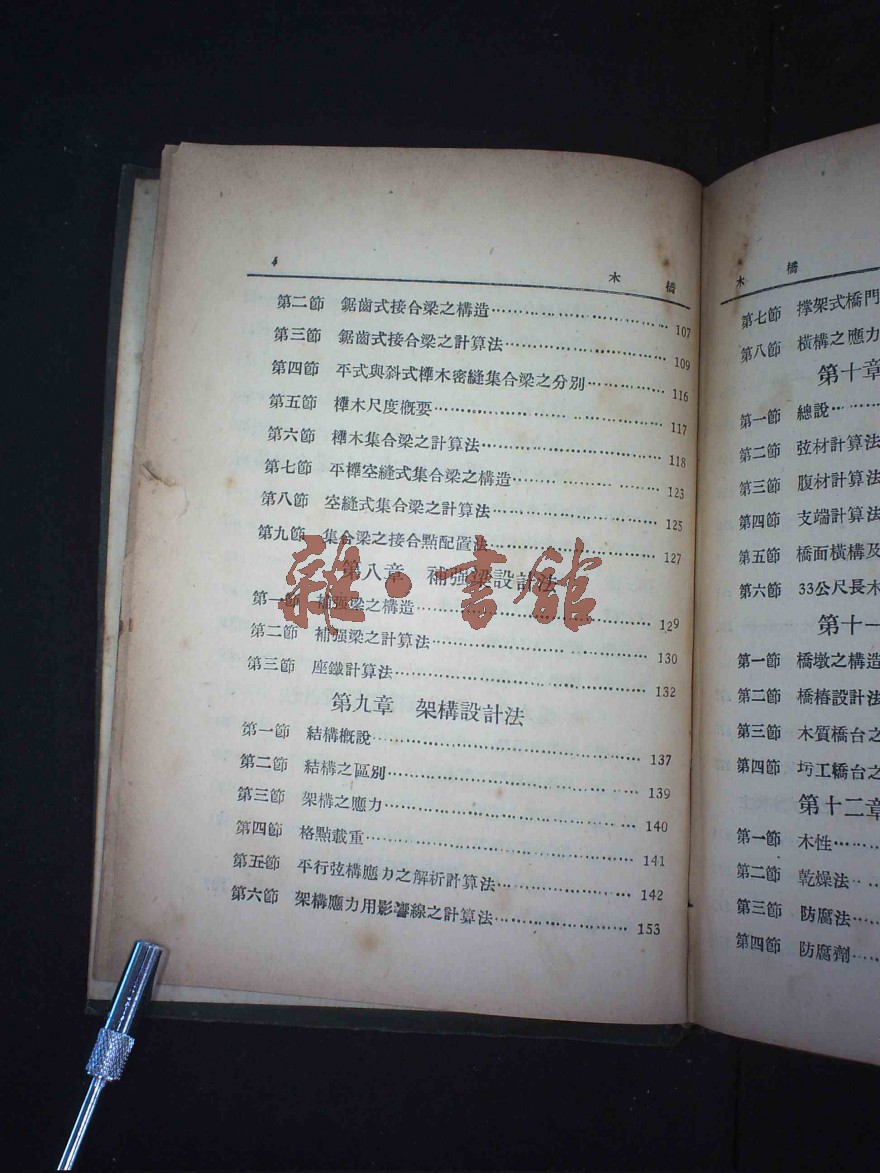 4
木 橋
第二節 鋸齒式接合梁之構造 107
第三節 鋸齒式接合梁之計算法 109
第四節 平式與斜式榫木密縫集合梁之分別 116
第五節 榫木尺度概要 117
第六節 榫木集合梁之計算法 118
第七節 平榫空縫式集合梁之構造 123
第八節 空縫式集合梁之計算法 125
第九節 集合梁之接合點配置法 127
第八章 補強梁設計法
第一節 補强梁之構造 129
第二節 補强梁之計算法 130
第三節 座鐵計算法 132
第九章 架構設計法
第一節 結構概說 137
第二節 結構之區別 139
第三節 架構之應力 140
第四節 格點載重 141
第五節 平行弦構應力之解析計算法 142
第六節 架構應力用影響線之計算法 153
雜·書館
木 橋
第七節 撑架式橋門
第八節 橫構之應力
第十章
第一節 總說
第二節 弦材計算法
第三節 腹材計算法
第四節 支端計算法
第五節 橋面橫構及
第六節 33公尺長木
第十一
第一節 橋墩之構造
第二節 橋樁設計法
第三節 木質橋台之
第四節 圬工橋台之
第十二章
第一節 木性
第二節 乾燥法
第三節 防腐法
第四節 防腐劑